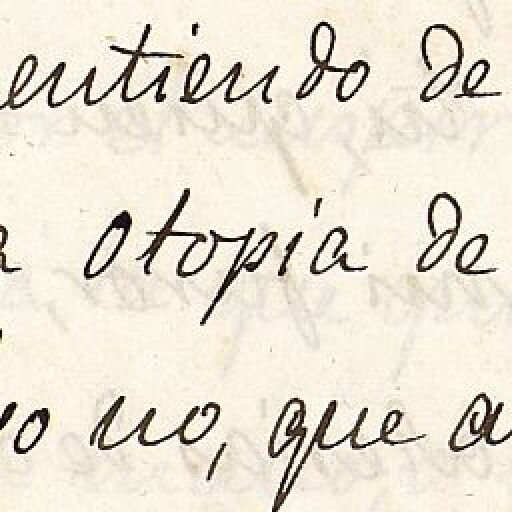 entiendo de
a Otopia de
yo no, que a